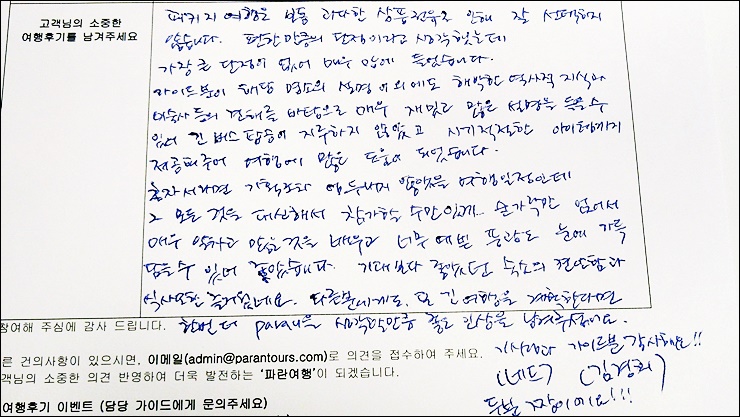 고객님의 소중한
여행후기를 남겨주세요
패키지 여행을 보통 과다한 상품권유로 인해 잘 선택하지
않습니다. 편한만큼의 단점이라고 생각했는데
가장 큰 단점이 없어 매우 맘에 들었습니다.
가이드분이 해당 명소의 설명 이외에도 해박한 역사적 지식과
미술사 등의 견해를 바탕으로 매우 재밌고 많은 설명을 들을 수
있어 긴 버스 탑승이 지루하지 않았고 시기적절한 아이템까지
제공해주어 여행에 많은 도움이 되었습니다.
혼자서라면 계획조차 엄두내지 않았을 여행일정인데
그 모든 것을 대신해서 참가할 수만 있게.. 숟가락만 얹어서
매우 알차고 많은 것을 배우고 너무 예쁜 풍광도 눈에 가득
담을 수 있어 좋았습니다. 기대보다 좋았던 숙소의 편안함과
식사또한 즐거웠네요. 다른분에게도, 또 긴 여행을 계획한다면
한번 더 paran을 생각할만큼 좋은 인상을 남겨주셨어요.
참여해 주심에 감사 드립니다.
른 건의사항이 있으시면, 이메일(admin@parantours.com)로 의견을 접수하여 주세요.
고객님의 소중한 의견 반영하여 더욱 발전하는 '파란여행'이 되겠습니다.
기사님과 가이드분 감사해요!!
(네드) (김경희)
두분 최장이에요!!!
여행후기 이벤트 (담당 가이드에게 문의주세요)